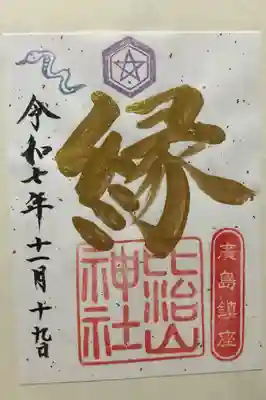 廣島鎮座
縁
比治山
神社
令和七年十一月十九日